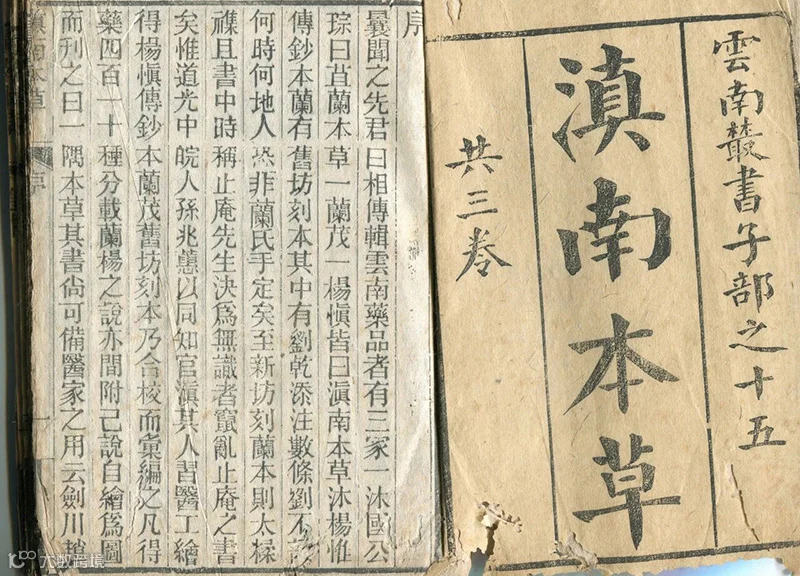 雲南叢書子部之十五
滇南本草
共三卷
序
曩聞之先君曰相傳輯雲南藥品者有三家一沐國公
琮曰苴蘭本草一蘭茂一楊慎皆曰滇南本草沐楊惟
傳鈔本蘭有舊坊刻本其中有劉乾添注數條劉不
何時何地人恐非蘭氏手定矣至新坊刻蘭本則太
襍且書中時稱止庵先生決爲無識者竄亂止庵之書
矣惟道光中皖人孫兆蕙以同知官滇其人習醫工繪
得楊慎傳鈔本蘭茂舊坊刻本乃合校而彙編之凡得
藥四百一十種分載蘭楊之說亦間附己說自繪爲圖
而刊之曰一隅本草其書尙可備醫家之用云劍川趙
滇南本草
序
一
大數跨境